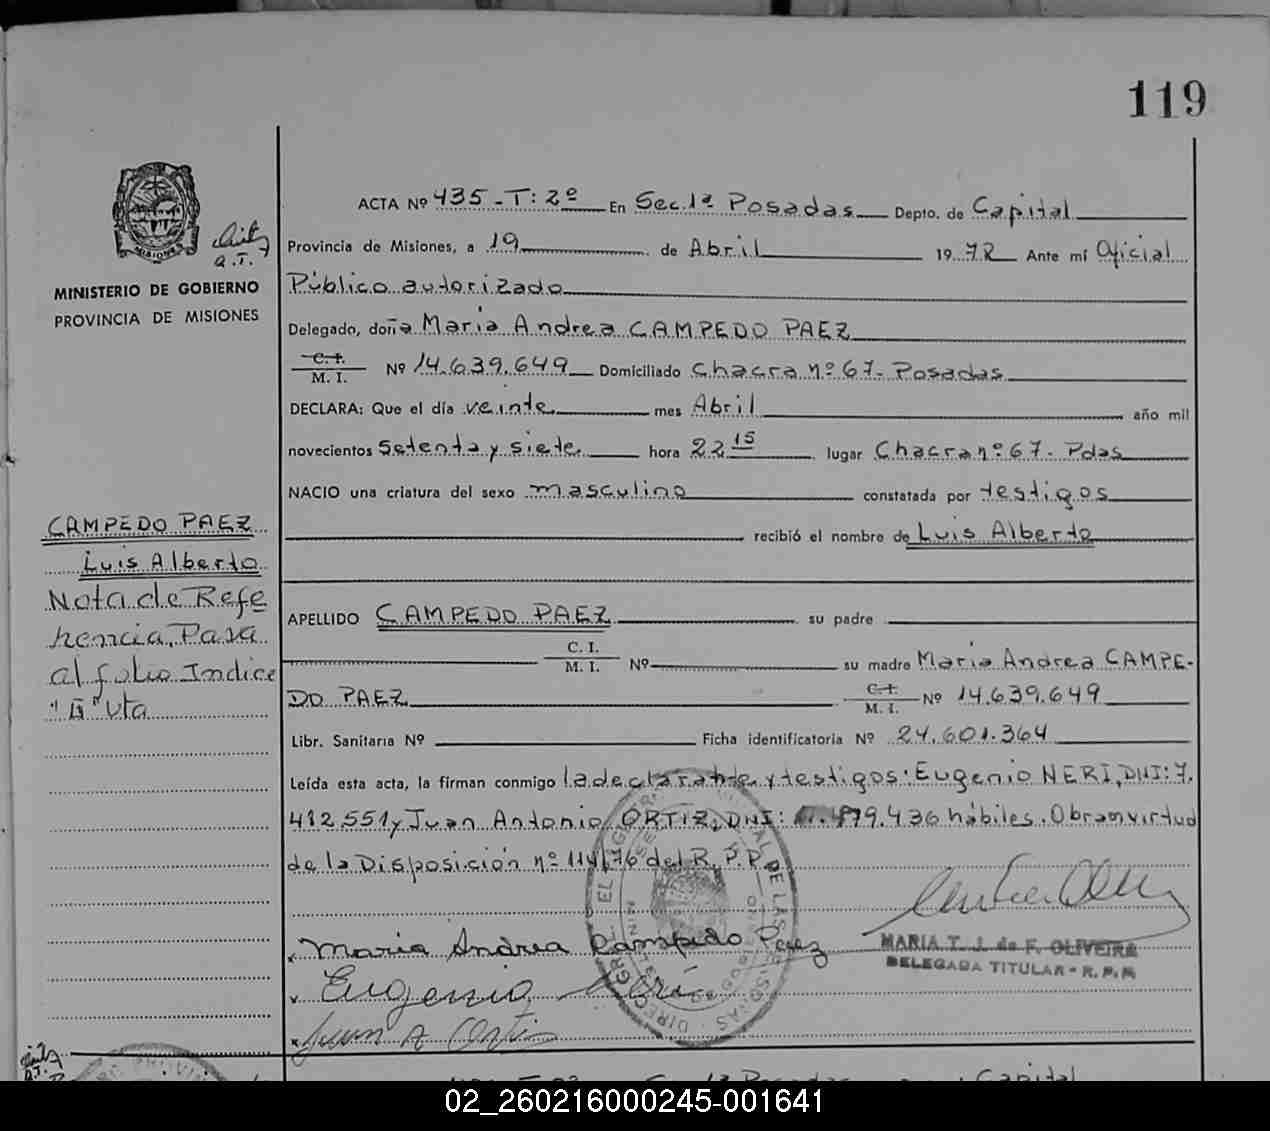 119
ACTA Nº 435 - T: 2º En Sec. 1ª Posadas Depto. de Capital
Provincia de Misiones, a 19 de Abril 1972 Ante mí Oficial
Público autorizado
MINISTERIO DE GOBIERNO
PROVINCIA DE MISIONES
Delegado, doña María Andrea CAMPEDO PAEZ
C. I.
M. I. Nº 14.639.649 Domiciliado Chacra nº 67- Posadas
DECLARA: Que el día veinte mes Abril año mil
novecientos Setenta y siete hora 22 15 lugar Chacra nº 67- Pdas
NACIO una criatura del sexo masculino constatada por testigos
recibió el nombre de Luis Alberto
CAMPEDO PAEZ
Luis Alberto
Nota de Refe
rencia, Pasa
al folio Indice
APELLIDO CAMPEDO PAEZ su padre
C. I.
M. I. Nº su madre María Andrea CAMPE-
DO PAEZ C. I.
M. I. Nº 14.639.649
Libr. Sanitaria Nº Ficha identificatoria Nº 24.601.364
Leída esta acta, la firman conmigo la declarante y testigos: Eugenio NERI, DNI: 7.
412551 y Juan Antonio ORTIZ, DNI: 479.436 hábiles. Obra en virtud
de la Disposición nº 114/76 del R. P. P.
María Andrea Campedo Paez
MARIA T. J. de F. OLIVEIRA
DELEGADA TITULAR - R. P. P.
Eugenio Neri
Juan A Ortiz
02_260216000245-001641